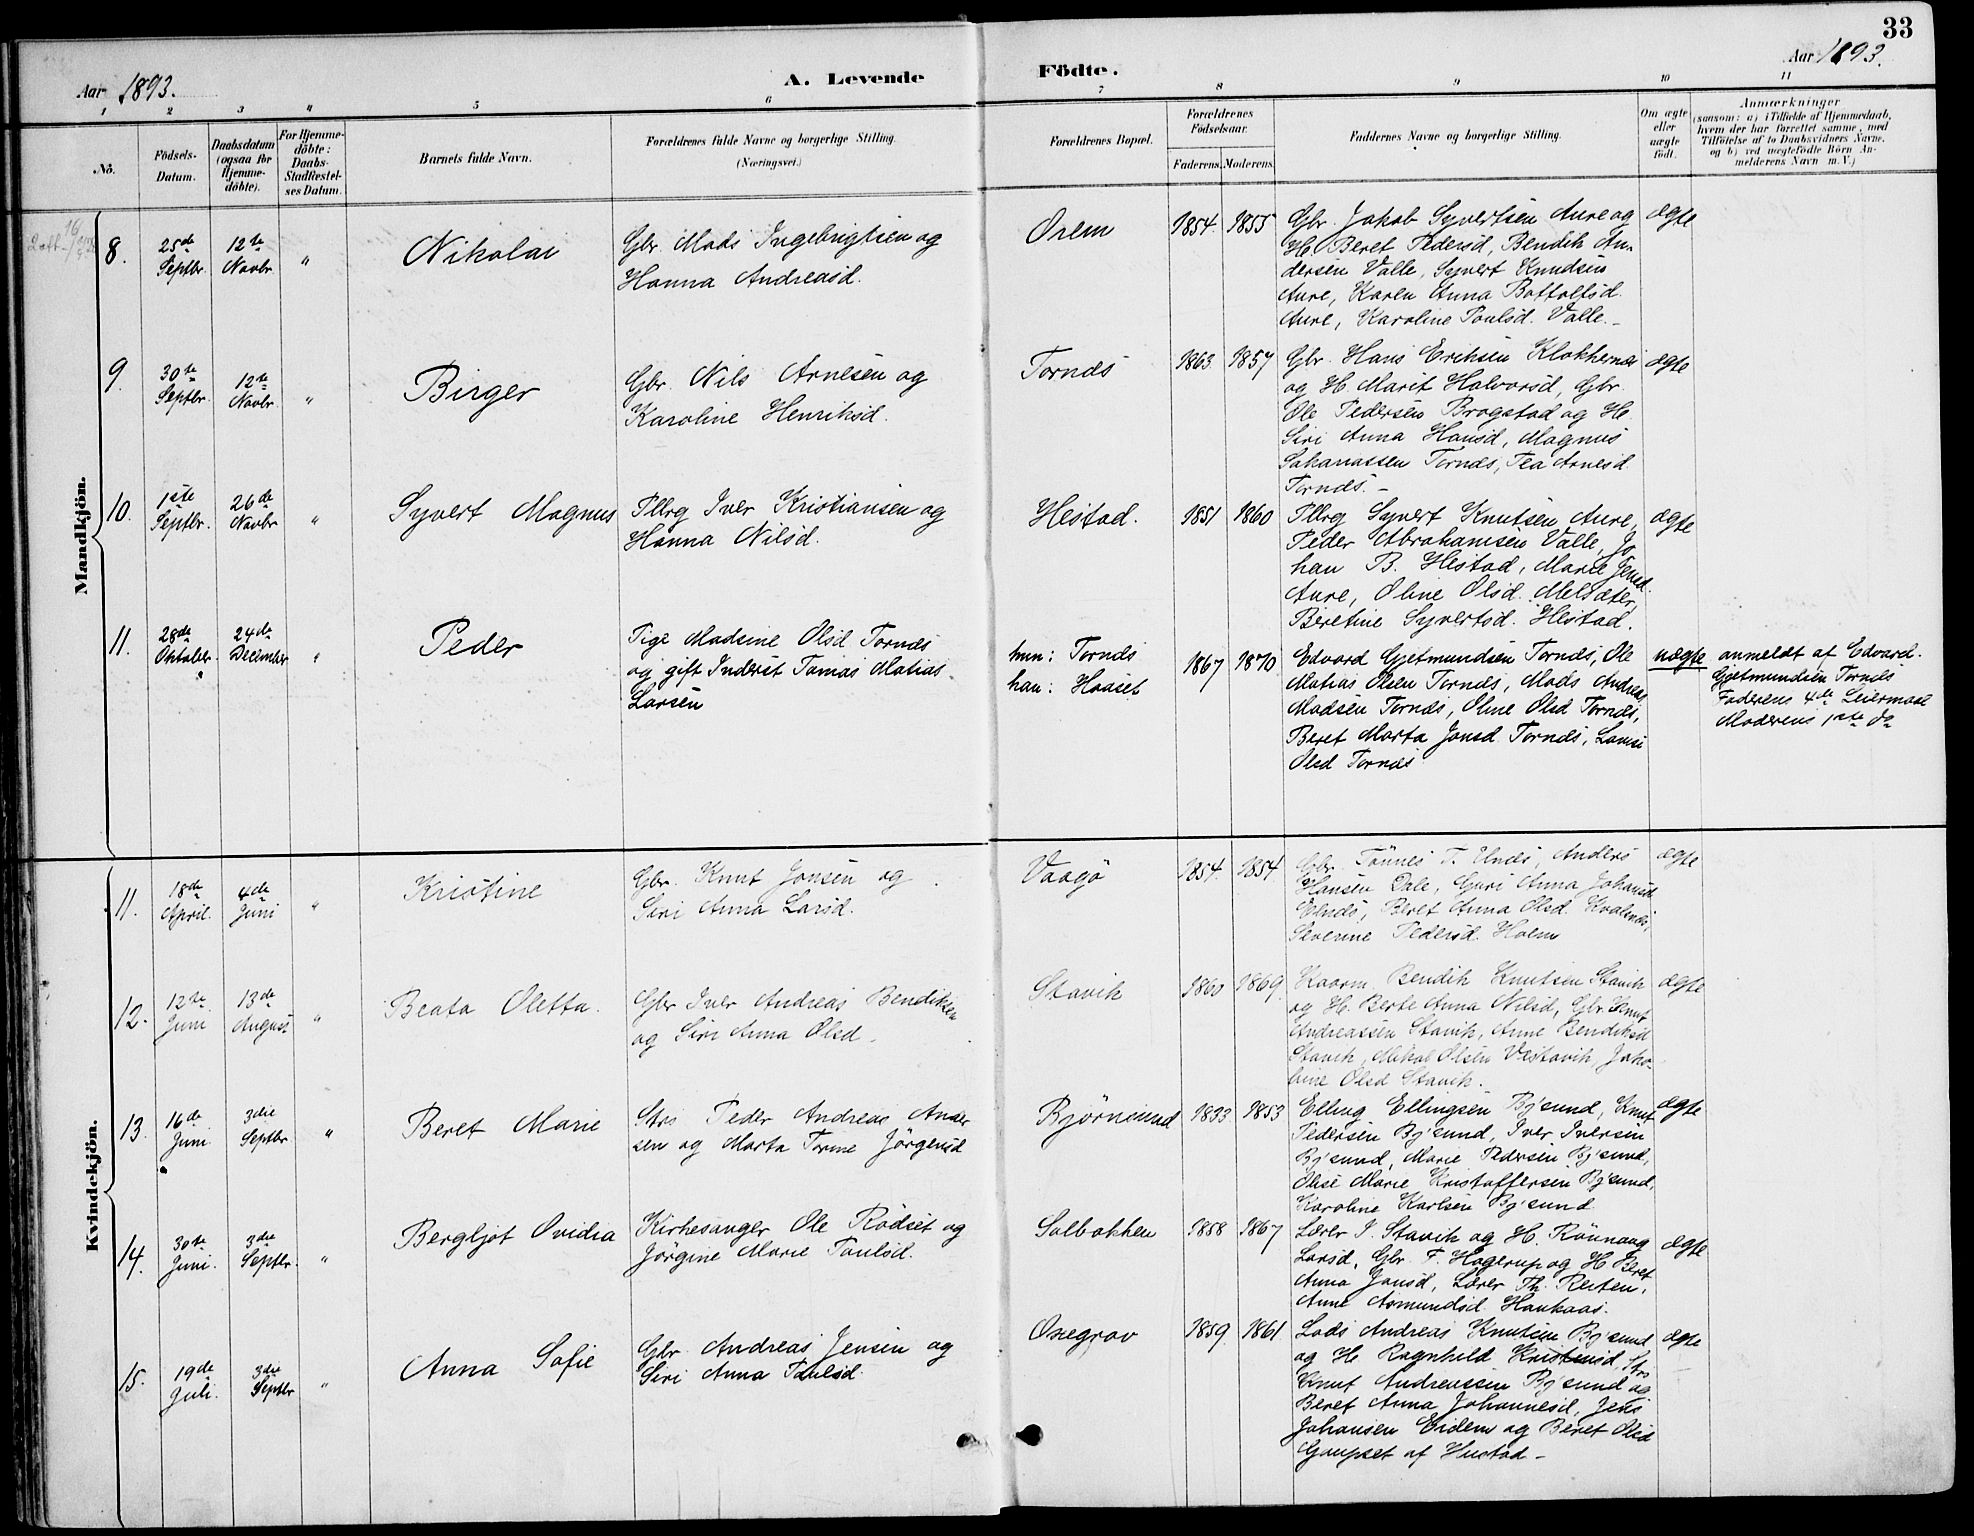 33
Aar 1893.
A. Levende
Födte.
Aar 1893.
1 2 3 4 5 6 7 8 9 10 11
No.
Födsels-
Datum.
Daabsdatum
(ogsaa for
Hjemme-
döbte).
For Hjemme-
döbte:
Daabs-
Stadfæstel-
ses Datum.
Barnets fulde Navn.
Forældrenes fulde Navne og borgerlige Stilling.
(Næringsvei.)
Forældrenes Bopæl.
Forældrenes
Födselsaar.
Faderens. Moderens.
Faddernes Navne og borgerlige Stilling.
Om ægte
eller
uægte
födt.
Anmærkninger
(saasom: a) i Tilfælde af Hjemmedaab,
hvem der har forrettet samme, med
Tilföielse af to Daabsvidners Navne.
og b) ved uægtefödte Börn An-
melderens Navn m. V.)
Mandkjön.
8.
25de
Septbr.
12te
Novbr.
"
Nikolai
Gbr. Mads Ingebrigtsen og
Hanna Andreasd.
Orem
1854. 1855
Gbr. Jakob Syvertsen Aure og
H. Beret Pedersd, Bendik An-
dersen Valle, Syvert Knudsen
Aure, Karen Anna Bottolfsd.
Aure, Karoline Paulsd. Valle.-
ægte
9.
30te
Septbr.
12te
Novbr.
"
Birger
Gbr. Nils Arnesen og
Karoline Henriksd.
Tornæs
1863. 1857
Gbr. Hans Eriksen Klokkernæs
og H. Marit Halvorsd, Gbr.
Ole Pedersen Brogstad og H.
Siri Anna Hansd, Magnus
Sakariassen Tornæs, Tea Arnesd.
Tornæs.-
ægte
10.
1ste
Septbr.
26de
Novbr.
"
Syvert Magnus
Pllrg Iver Kristiansen og
Hanna Nilsd.
Hestad.
1851 1860
Pllrg Syvert Knutsen Aure,
Peder Abrahamsen Valle, Jo
han B. Hestad, Marie Jensd.
Aure, Oline Olsd. Melsæter,
Beretine Syvertsd. Hestad.
ægte
11.
28de
Oktober.
24de
December
"
Peder
Pige Madsine Olsd Tornæs
og gift Inderst Tomas Matias
Larsen
hun: Tornæs
han: Haaset
1867 1870
Edvard Gjetmundsen Tornæs, Ole
Matias Olsen Tornæs, Mads Andreas
Madsen Tornæs, Oline Olsd Tornæs,
Beret Marta Jonsd Tornæs, Lovise
Olsd Tornæs
uægte
anmeldt af Edvard
Gjetmundsen Tornæs
Faderens 4de Leiermaal
Moderens 1ste do
Kvindekjön.
11.
18de
April.
4de
Juni
"
Kristine
Gbr. Knut Jonsen og
Siri Anna Larsd.
Vaagö
1854. 1854
Gbr. Tönnes T. Anders
Hansen Dale, Guri Anna Johansd
Elnæs, Beret Anna Olsd. Kvalsnæs,
Severine Pedersd. Holm
ægte
12.
12te
Juni
13de
August
"
Beata Oletta.
Gbr Iver Andreas Bendiksen
og Siri Anna Olsd.
Stavik
1860 1869.
Kaarm. Bendik Knutsen Stavik
og H. Berte Anna Nilsd, Gbr. Knut
Andreassen Stavik, Anne Bendiksd
Stavik, Mikal Olsen Vestavik, Jako-
bine Olsd Stavik.
ægte
13.
16de
Juni
3die
Septbr.
"
Beret Marie
Strs Peder Andreas Ander
sen og Marta Torine Jörgensd
Bjørnsund
1853 1853
Elling Ellingsen Bj'sund, Knut
Pedersen Bj'sund, Iver Iversen
Bj'sund, Marie Pedersen Bj'sund,
Olise Marie Kristoffersen Bj'sund,
Karoline Karlsen Bj'sund
ægte
14.
30te
Juni.
3die
Septbr.
"
Bergljot Ovidia
Kirkesanger Ole Rödset og
Jörgine Marie Paulsd.
Solbakken
1858 1867
Lærer I. Stavik og H. Rönnaug
Larsd, Gbr. F. Hagerup og H. Beret
Anna Jansd, Lærer Th. Reiten,
Anne Asmundsd Haukaas.
ægte
15.
19de
Juli.
3die
Septbr
"
Anna Sofie
Gbr. Andreas Jensen og
Siri Anna Paulsd.
Oxegrov
1859. 1861
Lods Andreas Knutsen Bj'sund
og H. Ragnhild Kristensd, Strs
Knut Andreassen Bj'sund og
Beret Anna Johannesd, Jens
Johansen Eidem og Beret Olsd
Gaupset af Hustad-
ægte